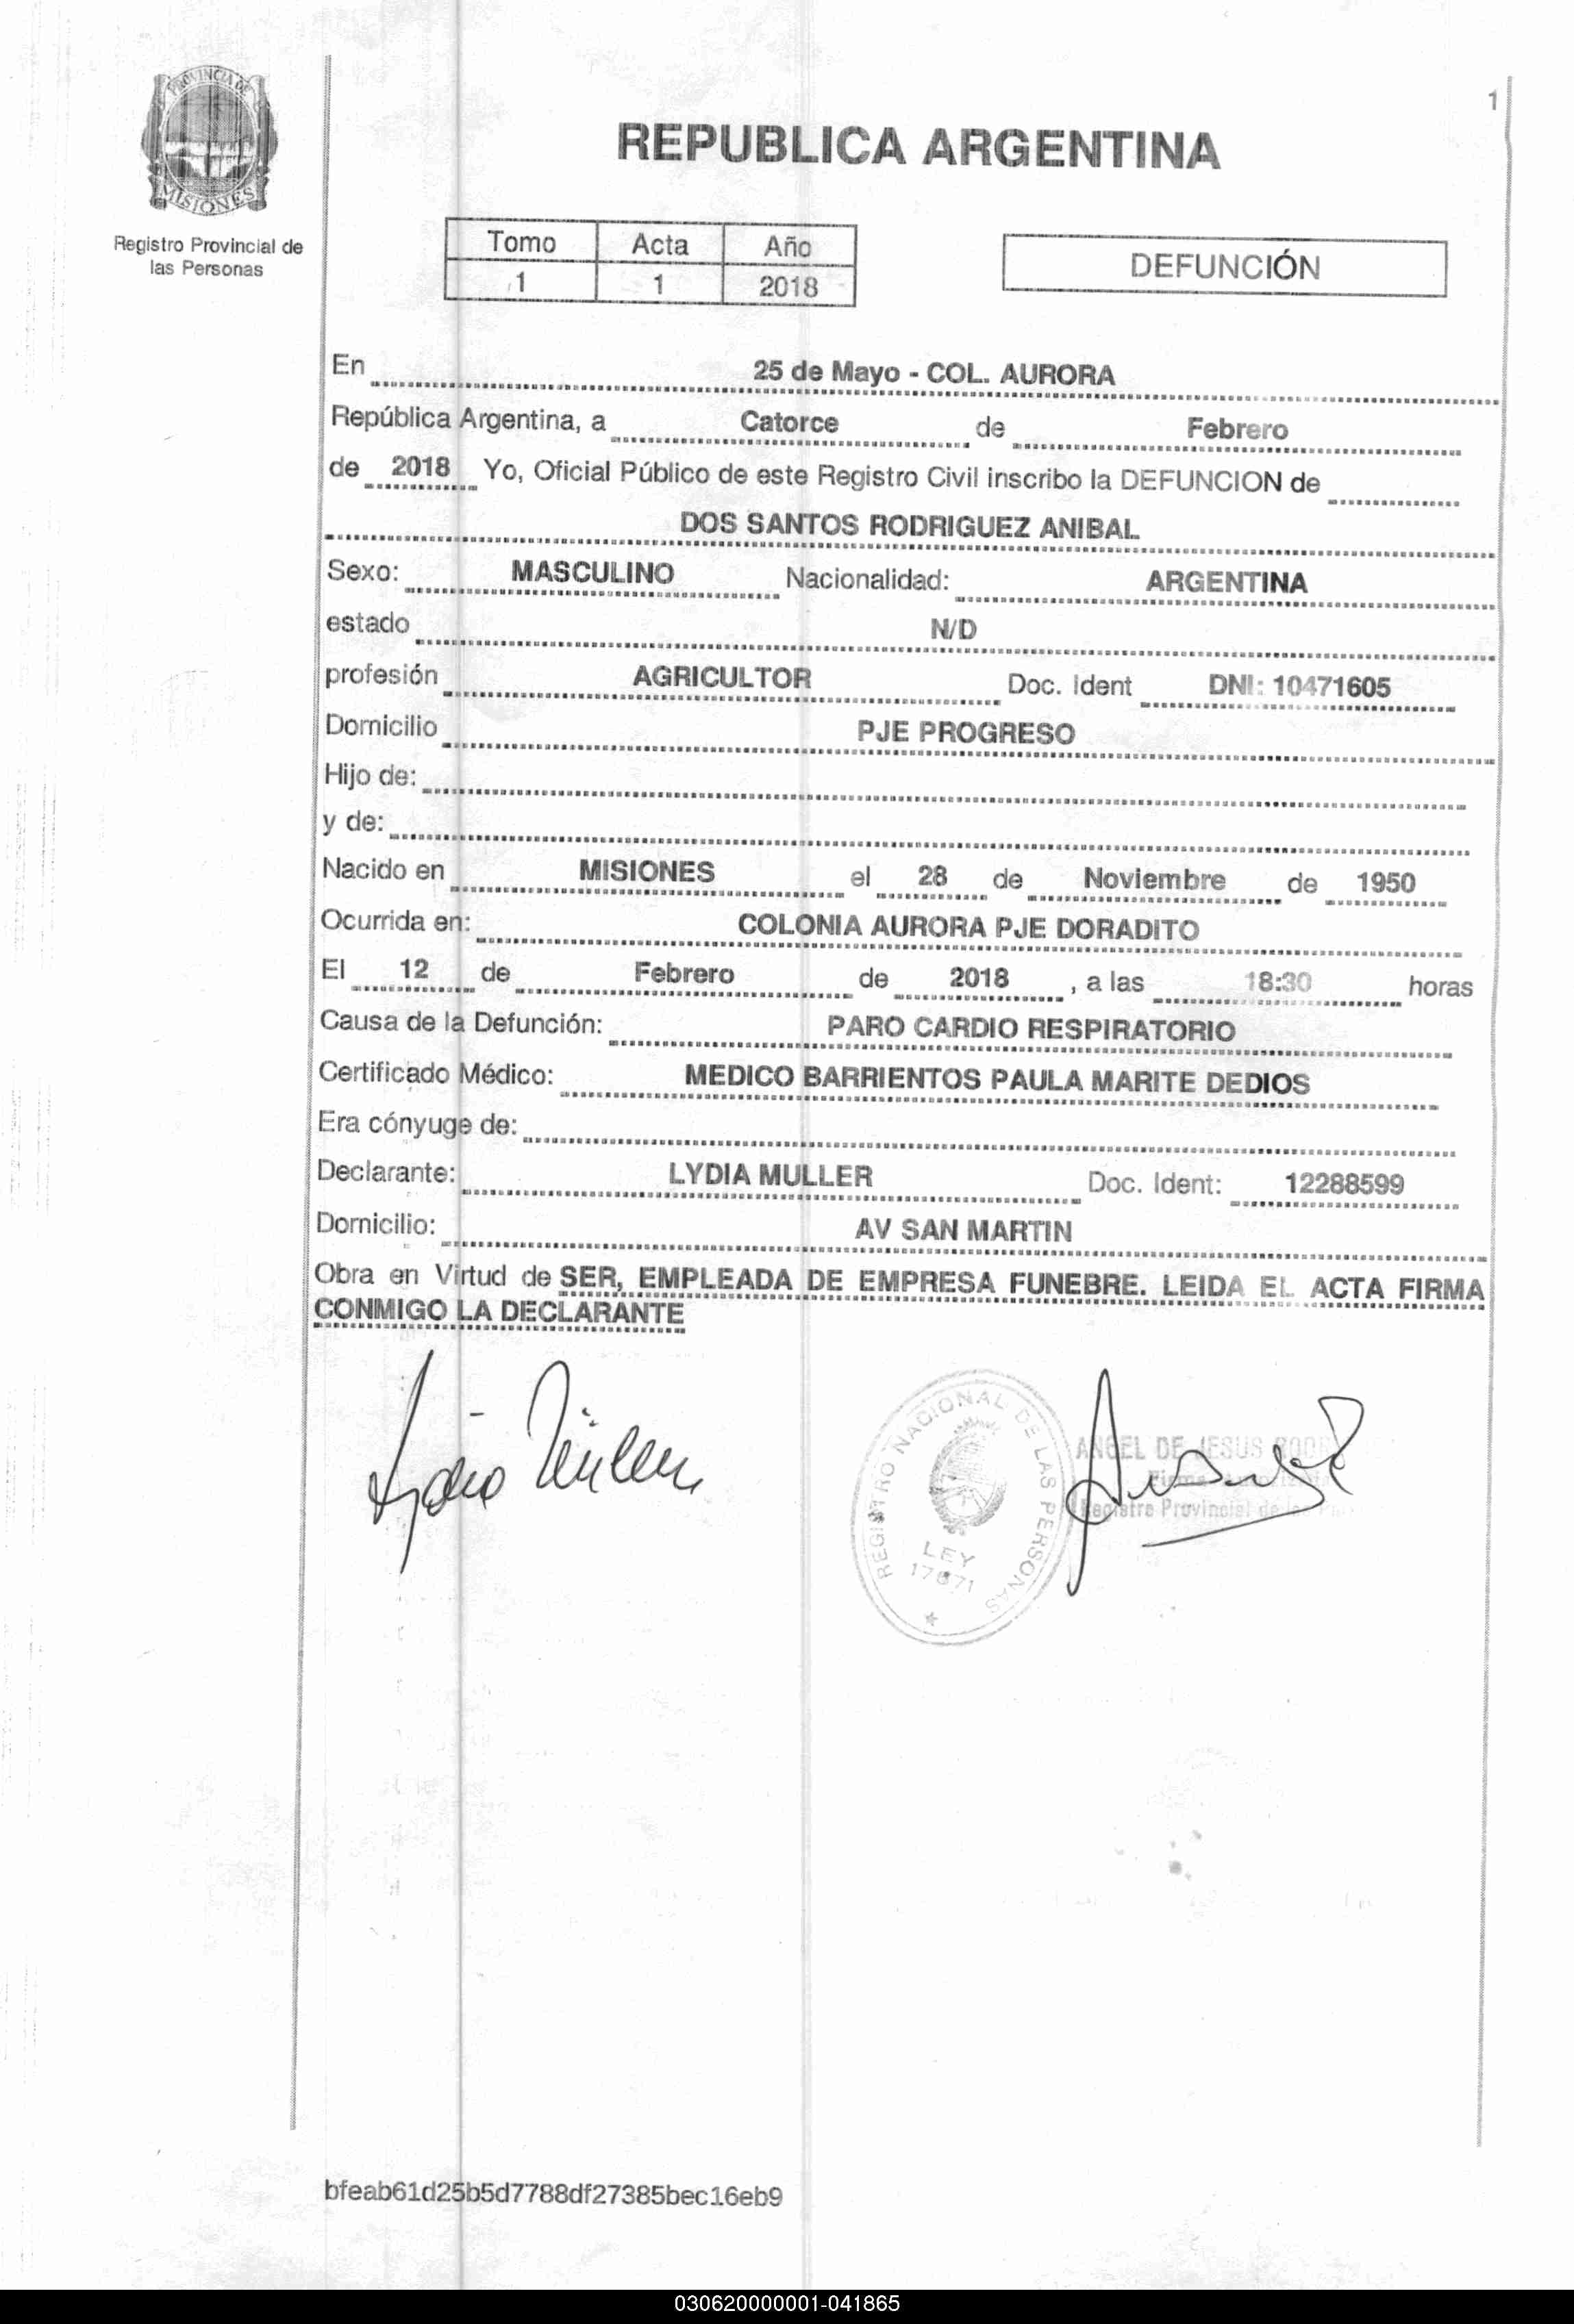 PROVINCIA DE
MISIONES
Registro Provincial de
las Personas
1
REPUBLICA ARGENTINA
Tomo Acta Año
1 1 2018
DEFUNCIÓN
En 25 de Mayo - COL. AURORA
República Argentina, a Catorce de Febrero
de 2018 Yo, Oficial Público de este Registro Civil inscribo la DEFUNCION de
DOS SANTOS RODRIGUEZ ANIBAL
Sexo: MASCULINO Nacionalidad: ARGENTINA
estado N/D
profesión AGRICULTOR Doc. Ident DNI: 10471605
Domicilio PJE PROGRESO
Hijo de:
y de:
Nacido en MISIONES el 28 de Noviembre de 1950
Ocurrida en: COLONIA AURORA PJE DORADITO
El 12 de Febrero de 2018 , a las 18:30 horas
Causa de la Defunción: PARO CARDIO RESPIRATORIO
Certificado Médico: MEDICO BARRIENTOS PAULA MARITE DEDIOS
Era cónyuge de:
Declarante: LYDIA MULLER Doc. Ident: 12288599
Domicilio: AV SAN MARTIN
Obra en Virtud de SER, EMPLEADA DE EMPRESA FUNEBRE. LEIDA EL ACTA FIRMA
CONMIGO LA DECLARANTE
Lydia Müller
REGISTRO NACIONAL DE LAS PERSONAS
LEY
17671
ANGEL DE JESUS
Firma
Registro Provincial de
bfeab61d25b5d7788df27385bec16eb9
030620000001-041865